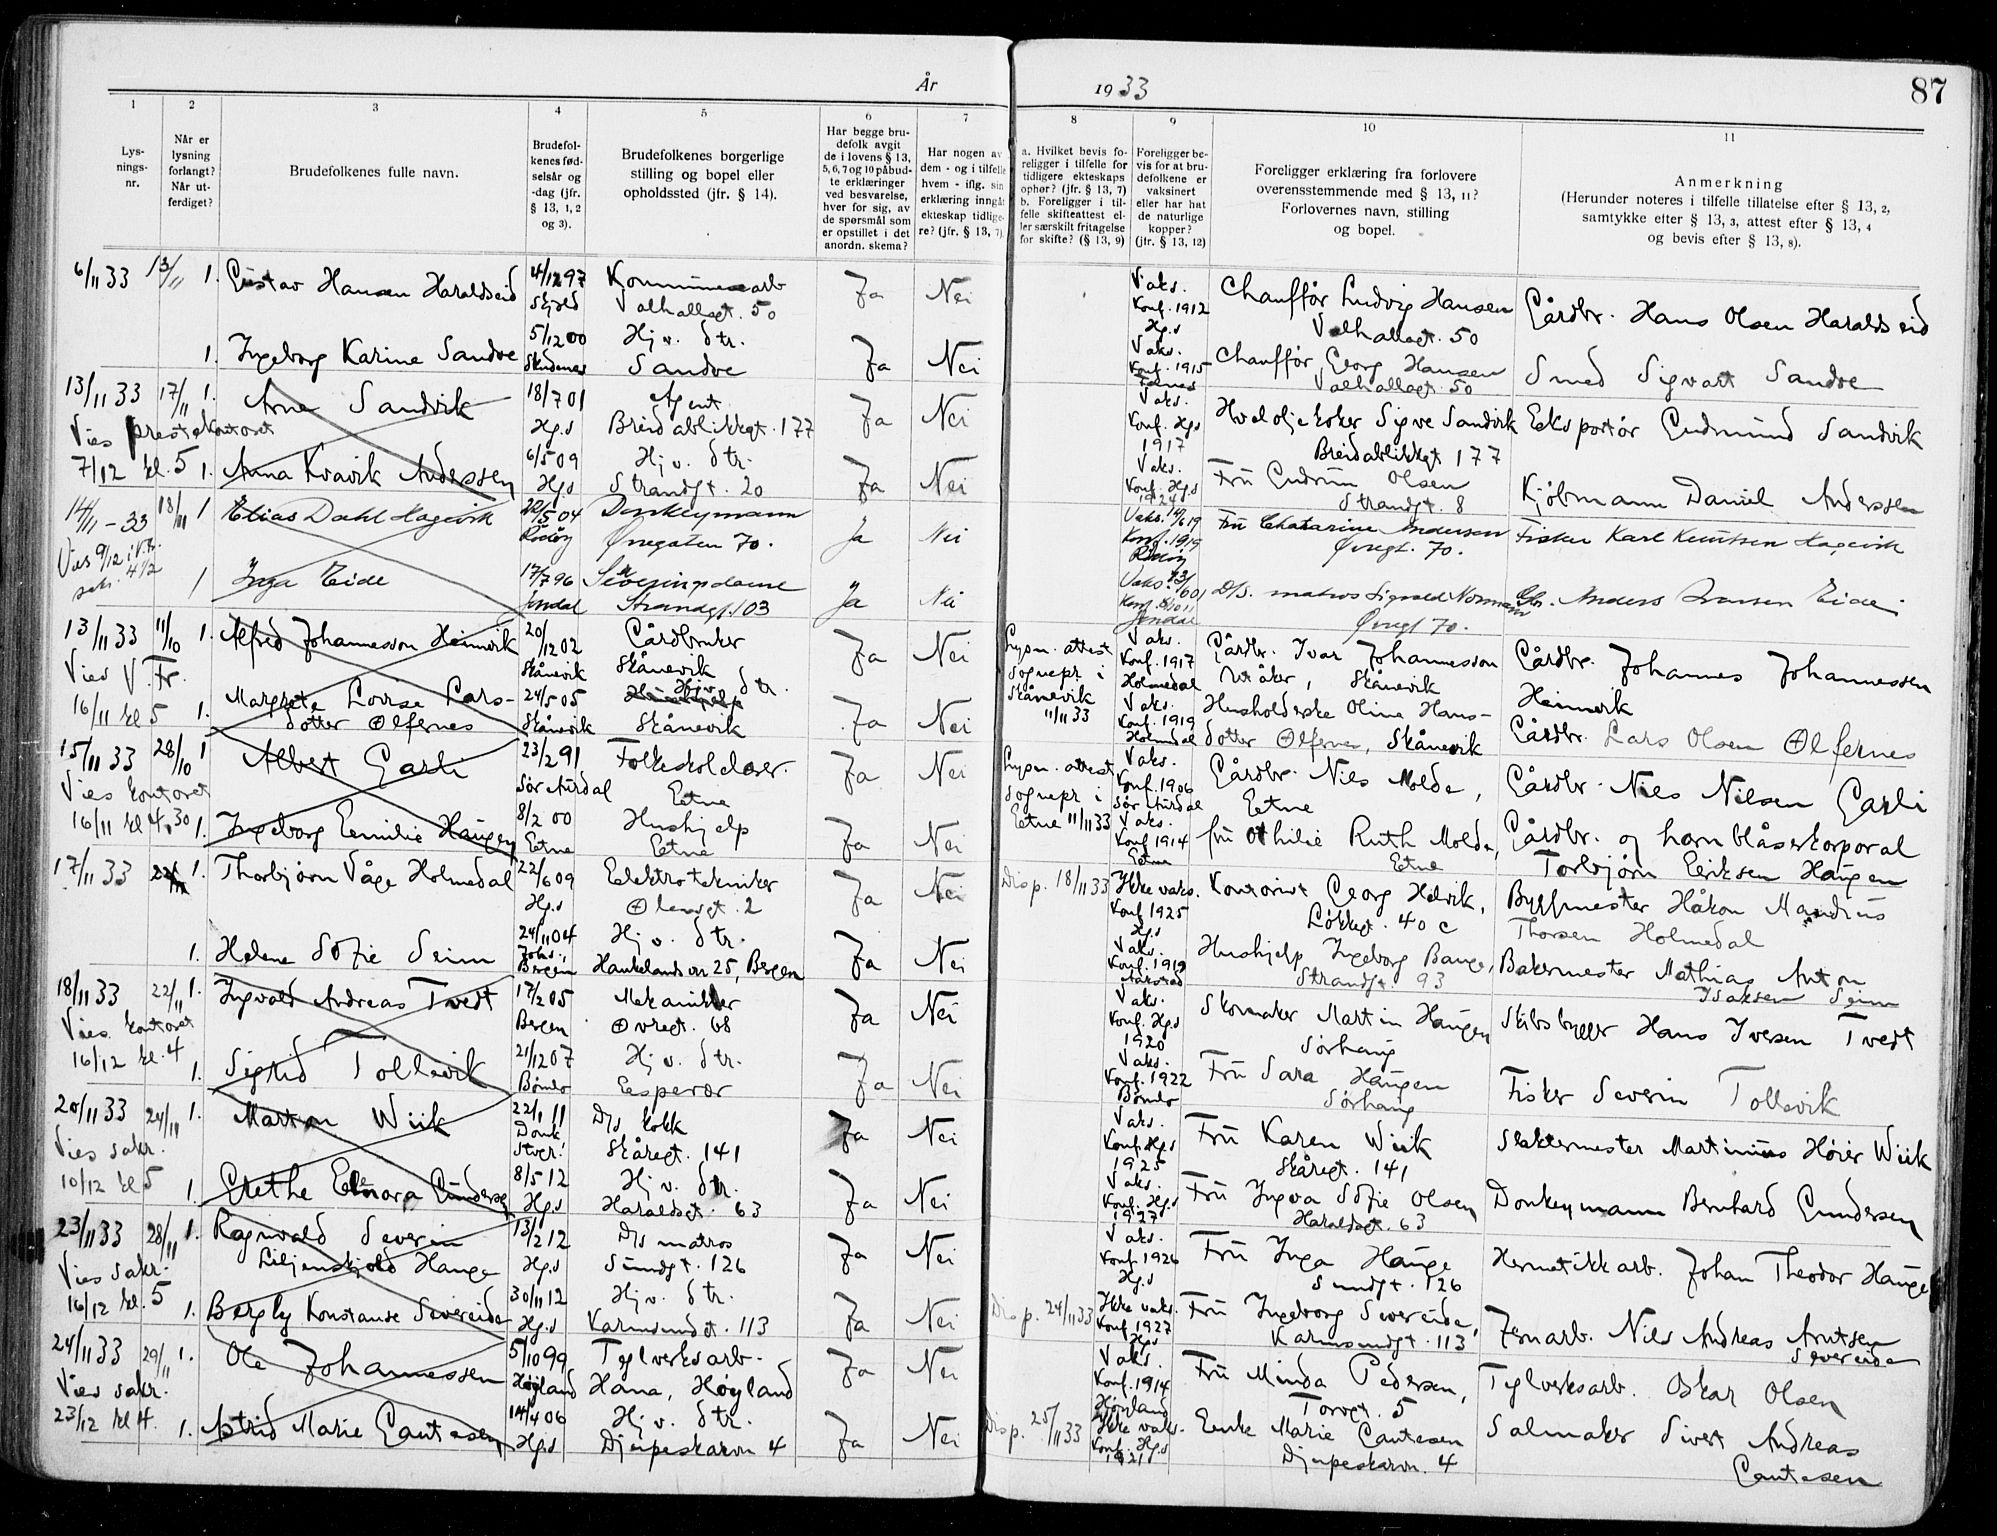 År 1933 87
1 2 3 4 5 6 7 8 9 10 11
Lys-
nings-
nr.
Når er
lysning
forlangt?
Når ut-
ferdiget?
Brudefolkenes fulle navn.
Brudefol-
kenes fød-
selsår og
-dag (jfr.
§ 13, 1, 2
og 3).
Brudefolkenes borgerlige
stilling og bopel eller
opholdssted (jfr. § 14).
Har begge bru-
defolk avgit
de i lovens § 13,
5, 6, 7 og 10 påbud-
te erklæringer
ved besvarelse,
hver for sig, av
de spørsmål som
er opstillet i det
anordn. skema?
Har nogen av
dem - og i tilfelle
hvem - iflg. sin
erklæring inngåt
ekteskap tidlige-
re? (jfr. § 13, 7).
a. Hvilket bevis fo-
religger i tilfelle for
tidligere ekteskaps
ophør? (jfr. § 13, 7)
b. Foreligger i til-
felle skifteattest el-
ler særskilt fritagelse
for skifte? (§ 13, 9)
Foreligger be-
vis for at bru-
defolkene er
vaksinert
eller har hat
de naturlige
kopper?
(jfr. § 13, 12)
Foreligger erklæring fra forlovere
overensstemmende med § 13, 11?
Forlovernes navn, stilling
og bopel.
Anmerkning
(Herunder noteres i tilfelle tillatelse efter § 13, 2,
samtykke efter § 13, 3, attest efter § 13, 4
og bevis efter § 13, 8).
6/11 33 13/11 1. Gustav Hansen Haraldseid 4/12 97 Kommunearb Ja Nei Vaks. Chauffør Ludvig Hansen Gårdbr. Hans Olsen Haraldseid
Skjold Valhallagt. 50 Konf. 1912 Valhallagt. 50
Hg.s
1. Ingeborg Karine Sandve 5/12 00 Hj v. dtr. Ja Nei Vaks. Chauffør Georg Hansen Smed Sigvart Sandve
Skudenes Sandve Konf. 1915 Valhallagt. 50
13/11 33 17/11 1. Arne Sandvik 18/7 01 Agent Ja Nei Vaks. Hvaloljekoker Sigve Sandvik Eksportør Gudmund Sandvik
Vies prestekontoret Hg.s Breidablikkgt. 177 Konf. Hgs Breidablikkgt 177
1917
7/12 kl. 5 1. Anna Kvavik Anderssen 6/5 09 Hj v. dtr. Ja Nei Vaks. Fru Gudrun Olsen Kjøbmann Daniel Anderssen
Hg.s Strandgt. 20 Konf. Hg.s Strandgt. 8
1924
14/11 - 33 18/11 1 Elias Dahl Hagevik 22/5 04 Donkeymann Ja Nei Vaks. 14/6 19 Fru Chatarine Andersen Fisker Karl Knutsen Hagevik
Rødøy Øvregaten 70. Konf. 1919 Øvregt. 70.
Rødøy
1 Inga Eide 17/7 96 Ja Nei D/S. matros Sigvald Normann Gbr. Anders Eide
Strandgt. 103 Øvregt 70.
13/11 33 11/10 1. Alfred Johannesson Heimvik 20/12 02 Gårdbruker Ja Nei Lysn. attest Vaks. Gårdbr. Ivar Johannesson Gårdbr. Johannes Johannessen
Vies V. Fr. Skånevik Skånevik sognepr i Konf. 1917 Skånevik Heimvik
Skånevik Holmedal
16/11 kl 5 1. Margrete Lovise Lars- 24/5 05 Hj v. dtr. Ja Nei 11/11 33 Vaks. Husholderske Oline Hans- Gårdbr. Lars Olsen Ølfernes
dotter Ølfernes Skånevik Skånevik Konf. 1919 dotter Ølfernes, Skånevik
Holmedal
15/11 33 28/10 1 Albert Garli 23/2 91 Folkeskolelærer. Ja Nei Lysn. attest Vaks. Gårdbr. Nils Molde, Gårdbr. Nils Nilsen Garli
Vies kontoret Sør Aurdal Etne sognepr i Konf. 1906 Etne
Etne 11/11 33 Sør Aurdal
16/11 kl 4.30 1. Ingeborg Emilie Haugen 8/2 00 Hushjelp Ja Nei Vaks. fru Othilie Ruth Molde, Gårdbr. og hornblåserkorporal
Etne Etne Konf. 1914 Etne Torbjørn Eriksen Haugen
Etne
17/11 33 1. Thorbjørn Våge Holmedal 22/6 09 Elektrotekniker Ja Nei Disp. 18/11 33 Ikke vaks. Kontorist Georg Helvik, Byggmester Håkon Mandius
Hg.s Ølensgt. 2 Konf 1925 Løkkegt. 40 c Thorsen Holmedal
Hg.s
1. Helene Sofie Seim 24/11 04 Hj v. dtr. Ja Nei Vaks. Hushjelp Ingeborg Bauge, Bakermester Mathias Anton
Bergen Haukelandsvn 25, Bergen Konf. 1919 Strandgt. 93 Isaksen Seim
18/11 33 22/11 1. Ingvald Andreas Tvedt 17/2 05 Mekaniker Ja Nei Vaks. Skomaker Martin Haugen Skibsbygger Hans Iversen Tvedt
Vies kontoret Bergen Øvregt. 68 Konf. Hg.s Sørhaug
1920
16/12 kl. 4 1. Sigrid Tollevik 21/12 07 Hj v. dtr. Ja Nei Vaks. Fru Sara Haugen Fisker Severin Tollevik
Bømlo Espevær Konf. 1922 Sørhaug
Bømlo
20/11 33 24/11 1. Marton Wiik 22/1 11 D/s kokk Ja Nei Vaks. Fru Karen Wiik Slaktermester Martinius Høier Wiik
Vies sakr. Skåregt. 141 Konf. Hg.s Skåregt. 141
1925
10/12 kl 5 1. Grethe Elenora Gundersen 8/5 12 Hj v. dtr. Ja Nei Vaks. Fru Ingva Sofie Olsen Donkeymann Bernhard Gundersen
Hg.s Haraldsgt. 63 Konf. Hg.s Haraldsgt. 63
1927
23/11 33 28/11 1. Ragnvald Severin 13/2 12 D/s matros Ja Nei Vaks. Fru Inga Hauge Hermetikkarb. Johan Theodor Hauge
Vies sakr. Liljenskjold Hauge Hg.s Sundgt. 126 Konf 1926 Sundgt. 126
Hg.s
16/12 kl. 5 1. Bergly Konstanse Severeide 30/11 12 Hj v. dtr. Ja Nei Disp. 24/11 33 Ikke vaks. Fru Ingeborg Severeide, Jernarb. Nils Andreas Arntsen
Hg.s Karmsundgt. 113 Konf 1927 Karmsundgt. 113 Severeide
Hg.s
24/11 33 29/11 1. Ole Johannessen 5/10 99 Teglverksarb. Ja Nei Vaks. Fru Minda Pedersen, Teglverksarb. Oskar Olsen
Vies sakr. Høyland Hana, Høyland Konf. 1914 Torvgt. 5
Høyland
23/12 kl 4. 1. Astrid Marie Gautesen 14/4 06 Hj v. dtr. Ja Nei Disp. 25/11 33 Ikke vaks. Enke Marie Gautesen Salmaker Sivert Andreas
Hg.s Djupeskarvn 4 Konf. Hg.s Djupeskarvn. 4 Gautesen
1921